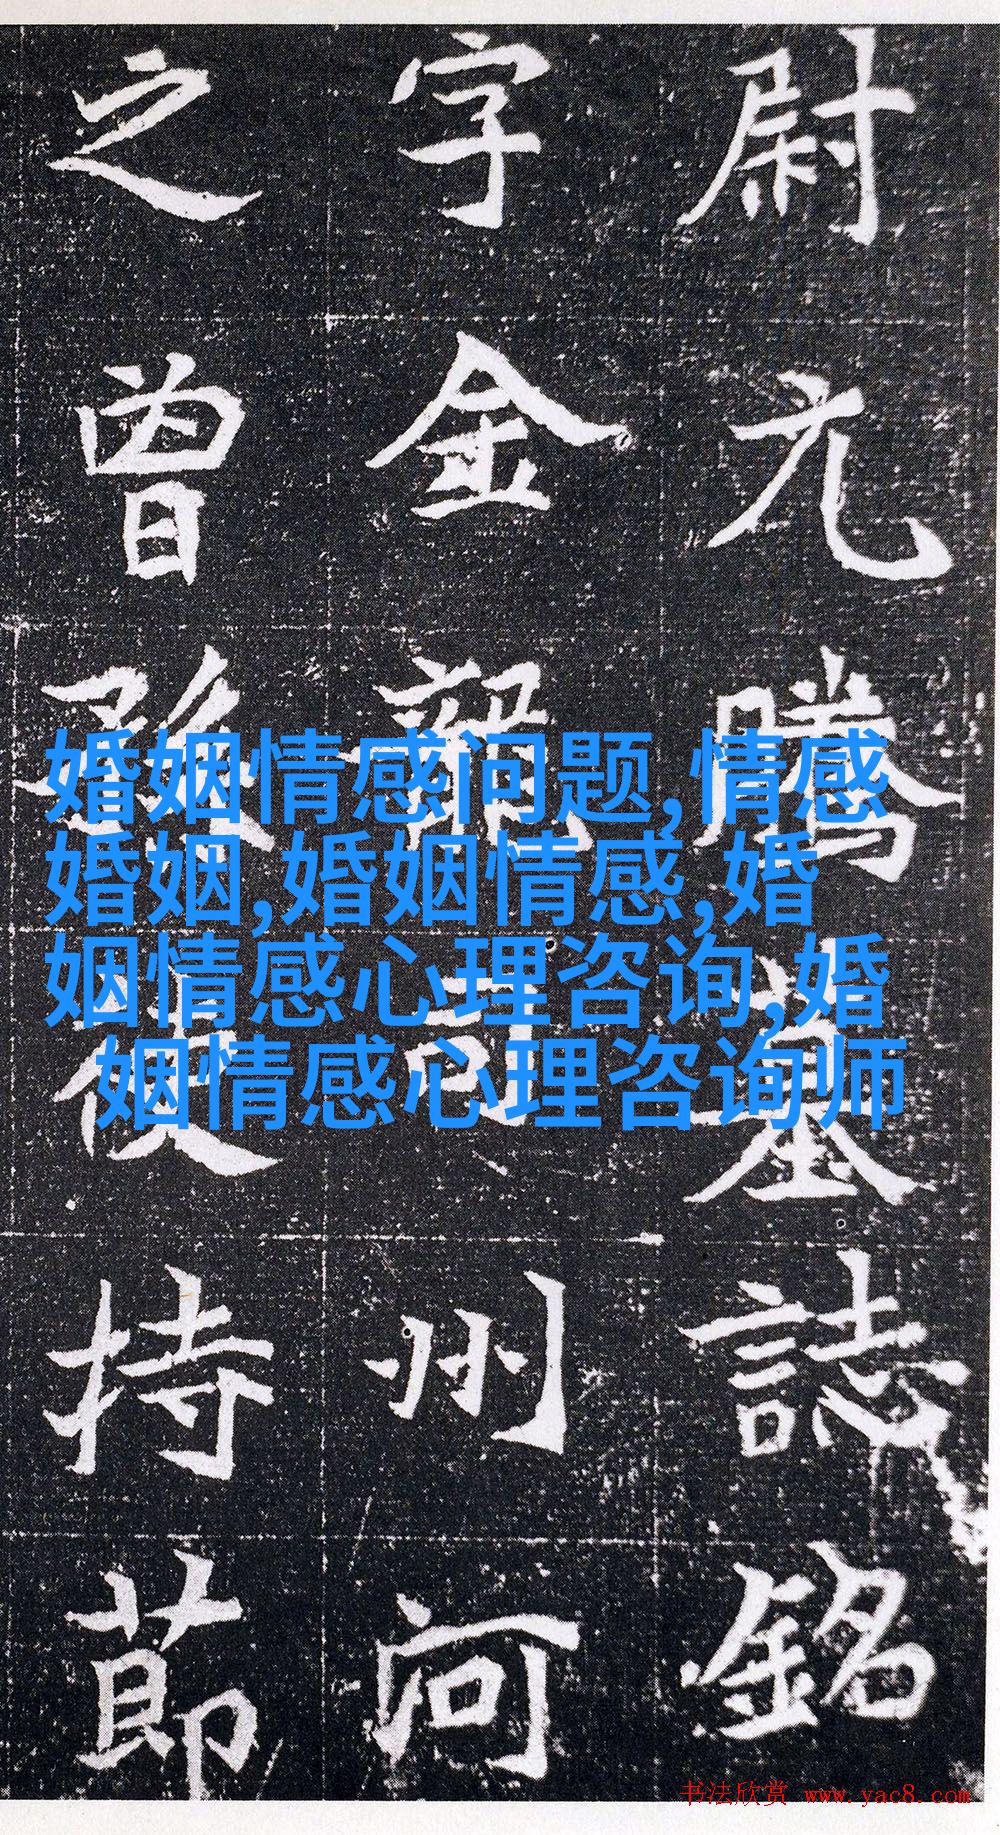 尉元騰墓誌銘
字金龍司州河
之曾孫使持節
婚姻情感问题,情感
婚姻,婚姻情感,婚
姻情感心理咨询,婚
姻情感心理咨询师
书法欣赏 www.yac8.com